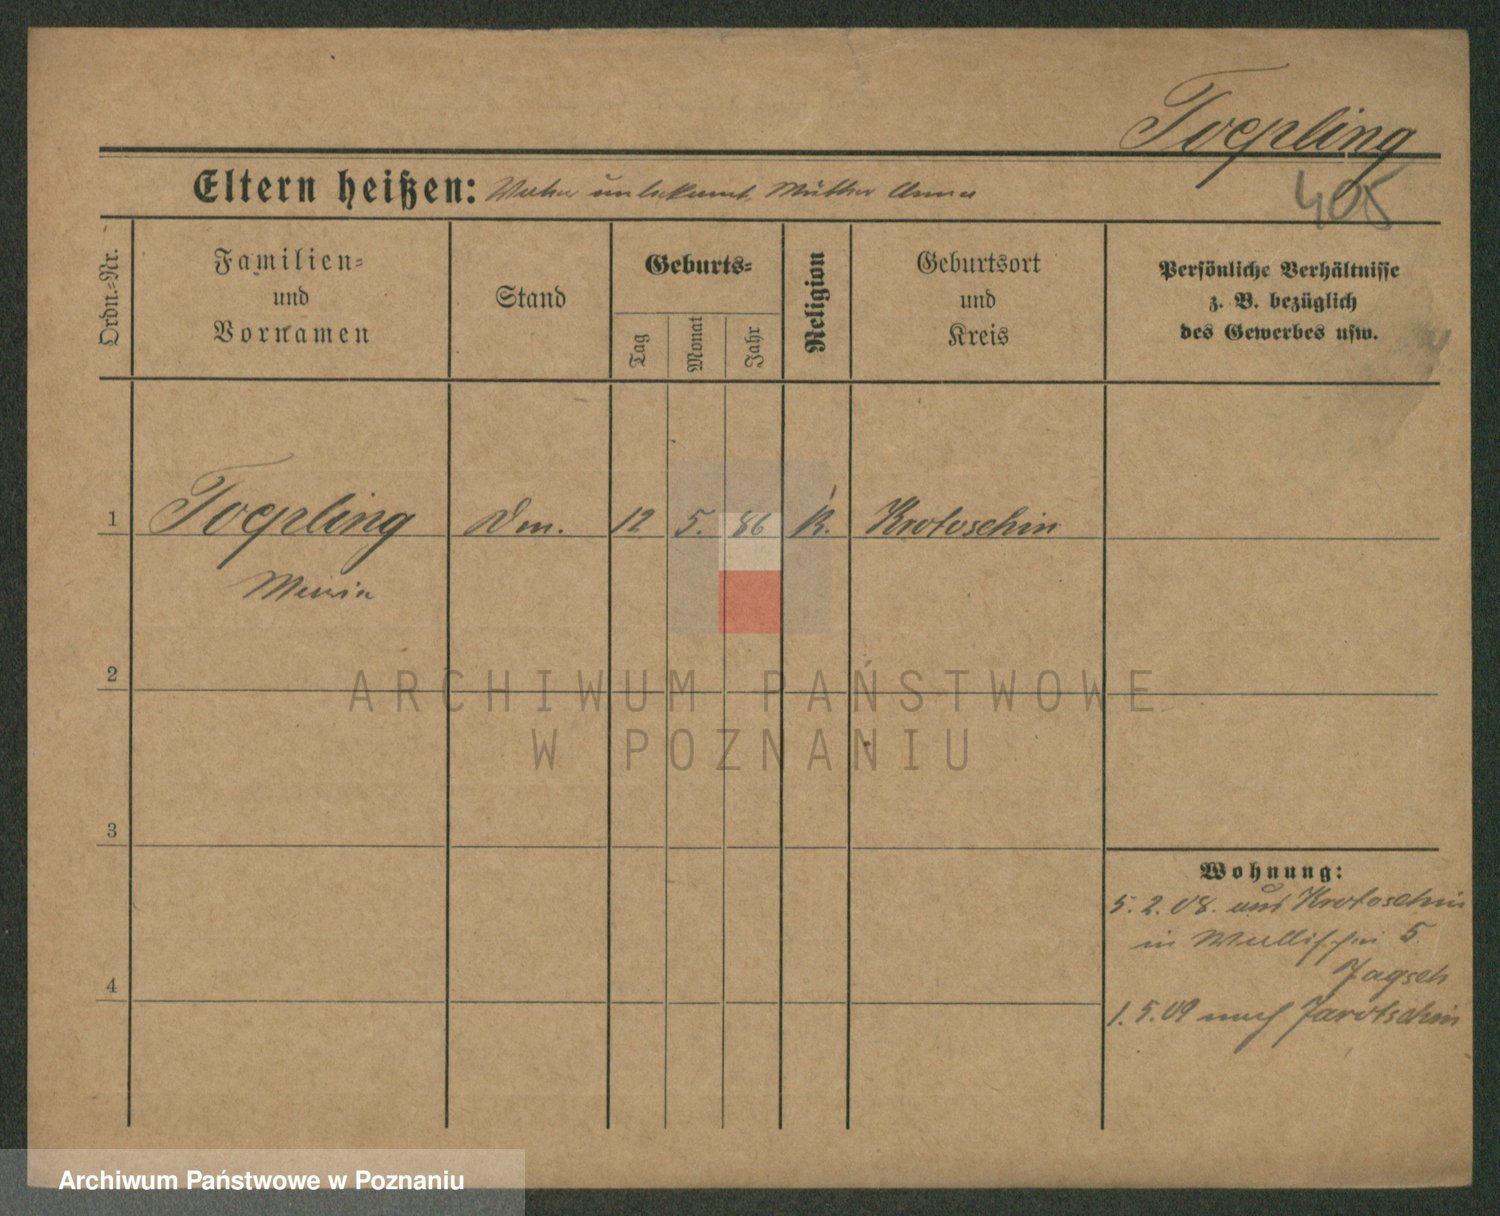 Toepling
Eltern heißen: Vater unbekannt, Mutter Anna
405
Ordn.-Nr.
Familien-
und
Vornamen
Stand
Geburts-
Tag
Monat
Jahr
Religion
Geburtsort
und
Kreis
Persönliche Verhältnisse
z. B. bezüglich
des Gewerbes usw.
1 Toepling 12 5. 86 K. Krotoschin
Maria
2
ARCHIWUM PAŃSTWOWE
W POZNANIU
3
Wohnung:
5. 2. 08. aus Krotoschin
in 5.
Jagsch
4
1. 5. 09 nach Jarotschin
Archiwum Państwowe w Poznaniu